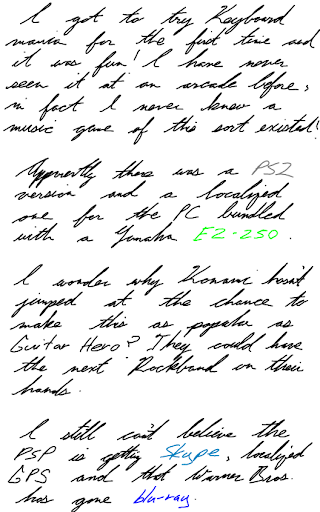 I got to try Keyboard
mania for the first time and
it was fun! I have never
seen it at an arcade before,
in fact I never knew a
music game of this sort existed!
Apparently there was a PS2
version and a localized
one for the PC bundled
with a Yamaha EZ-250.
I wonder why Konami hasn't
jumped at the chance to
make this as popular as
Guitar Hero? They could have
the next Rockband in their
hands.
I still can't believe the
PSP is getting Skype, localized
GPS and that Warner Bros.
has gone blu-ray.